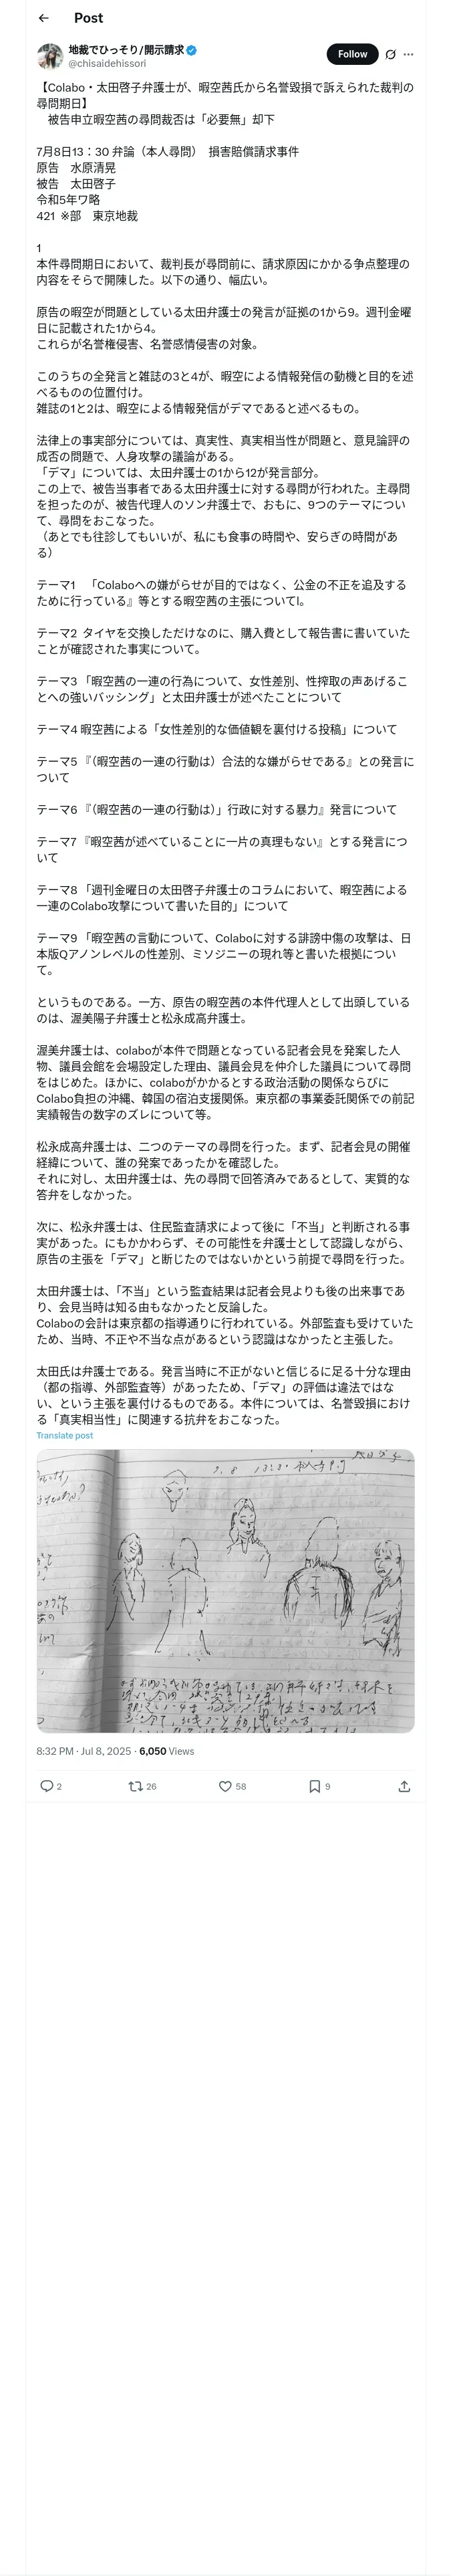 Post
地裁でひっそり/開示請求
@chisaidehissori
Follow
【Colabo・太田啓子弁護士が、暇空茜氏から名誉毀損で訴えられた裁判の
尋問期日】
　被告申立暇空茜の尋問裁否は「必要無」却下
7月8日13：30 弁論（本人尋問）　損害賠償請求事件
原告　水原清晃
被告　太田啓子
令和5年ワ略
421 ※部　東京地裁
1
本件尋問期日において、裁判長が尋問前に、請求原因にかかる争点整理の
内容をそらで開陳した。以下の通り、幅広い。
原告の暇空が問題としている太田弁護士の発言が証拠の1から9。週刊金曜
日に記載された1から4。
これらが名誉権侵害、名誉感情侵害の対象。
このうちの全発言と雑誌の3と4が、暇空による情報発信の動機と目的を述
べるものの位置付け。
雑誌の1と2は、暇空による情報発信がデマであると述べるもの。
法律上の事実部分については、真実性、真実相当性が問題と、意見論評の
成否の問題で、人身攻撃の議論がある。
「デマ」については、太田弁護士の1から12が発言部分。
この上で、被告当事者である太田弁護士に対する尋問が行われた。主尋問
を担ったのが、被告代理人のソン弁護士で、おもに、9つのテーマについ
て、尋問をおこなった。
（あとでも往診してもいいが、私にも食事の時間や、安らぎの時間があ
る）
テーマ1　「Colaboへの嫌がらせが目的ではなく、公金の不正を追及する
ために行っている』等とする暇空茜の主張についてl。
テーマ2 タイヤを交換しただけなのに、購入費として報告書に書いていた
ことが確認された事実について。
テーマ3 「暇空茜の一連の行為について、女性差別、性搾取の声あげるこ
とへの強いバッシング」と太田弁護士が述べたことについて
テーマ4 暇空茜による「女性差別的な価値観を裏付ける投稿」について
テーマ5 『（暇空茜の一連の行動は）合法的な嫌がらせである』との発言に
ついて
テーマ6 『（暇空茜の一連の行動は）」行政に対する暴力』発言について
テーマ7 『暇空茜が述べていることに一片の真理もない』とする発言につ
いて
テーマ8 「週刊金曜日の太田啓子弁護士のコラムにおいて、暇空茜による
一連のColabo攻撃について書いた目的」について
テーマ9 「暇空茜の言動について、Colaboに対する誹謗中傷の攻撃は、日
本版Qアノンレベルの性差別、ミソジニーの現れ等と書いた根拠につい
て。
というものである。一方、原告の暇空茜の本件代理人として出頭している
のは、渥美陽子弁護士と松永成高弁護士。
渥美弁護士は、colaboが本件で問題となっている記者会見を発案した人
物、議員会館を会場設定した理由、議員会見を仲介した議員について尋問
をはじめた。ほかに、colaboがかかるとする政治活動の関係ならびに
Colabo負担の沖縄、韓国の宿泊支援関係。東京都の事業委託関係での前記
実績報告の数字のズレについて等。
松永成高弁護士は、二つのテーマの尋問を行った。まず、記者会見の開催
経緯について、誰の発案であったかを確認した。
それに対し、太田弁護士は、先の尋問で回答済みであるとして、実質的な
答弁をしなかった。
次に、松永弁護士は、住民監査請求によって後に「不当」と判断される事
実があった。にもかかわらず、その可能性を弁護士として認識しながら、
原告の主張を「デマ」と断じたのではないかという前提で尋問を行った。
太田弁護士は、「不当」という監査結果は記者会見よりも後の出来事であ
り、会見当時は知る由もなかったと反論した。
Colaboの会計は東京都の指導通りに行われている。外部監査も受けていた
ため、当時、不正や不当な点があるという認識はなかったと主張した。
太田氏は弁護士である。発言当時に不正がないと信じるに足る十分な理由
（都の指導、外部監査等）があったため、「デマ」の評価は違法ではな
い、という主張を裏付けるものである。本件については、名誉毀損におけ
る「真実相当性」に関連する抗弁をおこなった。
Translate post
8:32 PM · Jul 8, 2025 · 6,050 Views
2
26
58
9